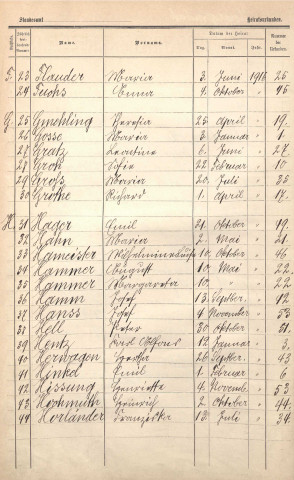 Standesamt Heiratsurkunden.
Name. Vorname. Datum der Heirat
Tag. Monat. Jahr.
F. 23 Flauder Maria 3. Juni 1918 25
24 Fuchs Anna 4. Oktober " 45
G. 25 Gmehling 25. April " 19.
26 Gosse Maria 3. Januar " 1.
27 Gratz Leontine 6. Juni " 27.
28 Grok Sofie 22. Februar " 10
29 Groß Maria 20. Juli " 35
30 Grothe Richard 1. April " 17.
H. 31 Hager Emil 31. Oktober " 19.
32 Hahn Maria 2. Mai " 21.
33 Hameister Wilhelmine 10. Oktober " 46
34 Hammer August 10. Mai " 22
35 Hammer Margareta " 22
36 Hamm Josef 13. Septbr. " 42
37 Hanss Josef 4. November " 53
38 Hell Peter 30. Oktober " 51.
39 Hentz Karl Alfons 12. Januar " 3.
40 Herwagen Bertha 26. Septbr. " 43
41 Hinkel Emil 1. Februar " 6
42 Hissung Henriette 4. Novembr " 53
43 Hochmuth Heinrich 2. Oktober " 44
44 Horländer Franziska 13. Juli " 34.